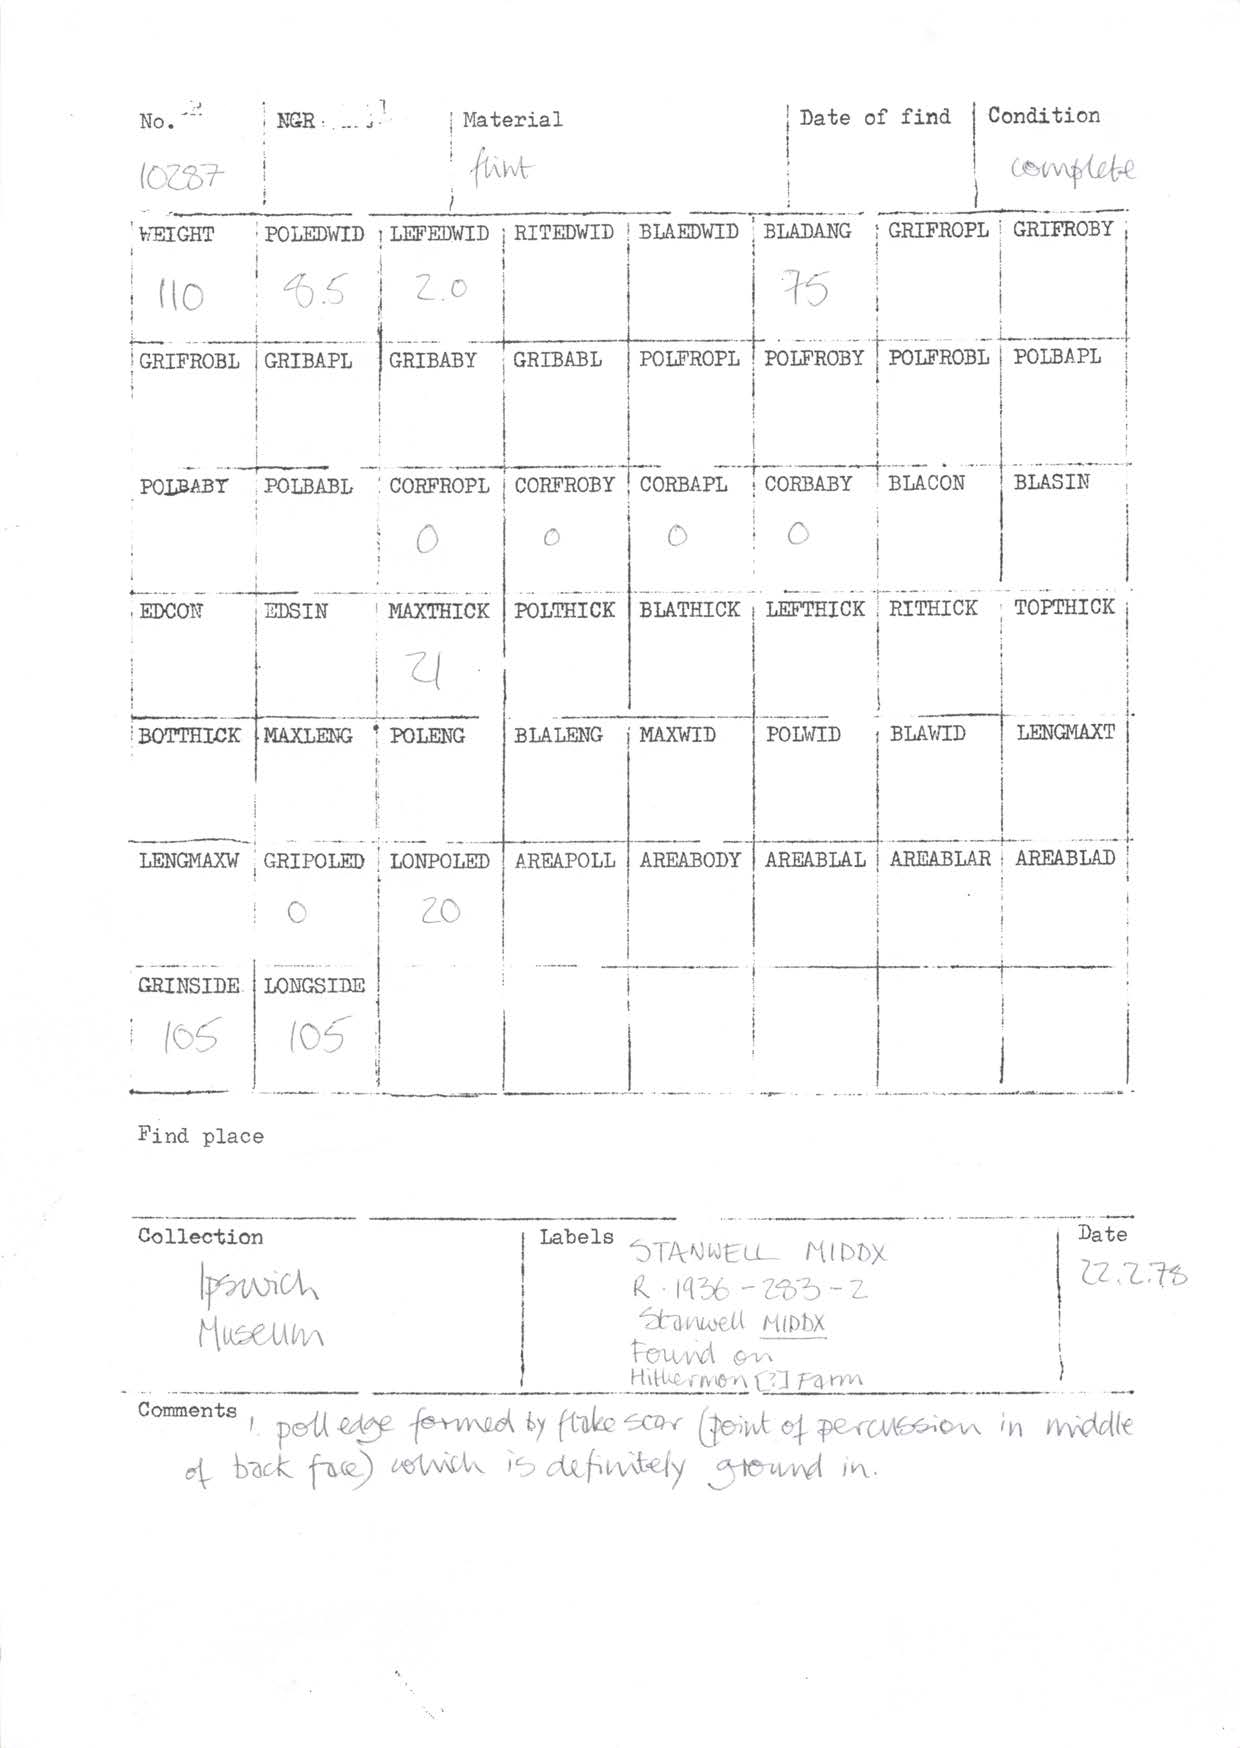 No. NGR Material Date of find Condition
10287 flint complete
WEIGHT POLEDWID LEFEDWID RITEDWID BLAEDWID BLADANG GRIFROPL GRIFROBY
110 8.5 2.0 75
GRIFROBL GRIBAPL GRIBABY GRIBABL POLFROPL POLFROBY POLFROBL POLBAPL
POLBABY POLBABL CORFROPL CORFROBY CORBAPL CORBABY BLACON BLASIN
0 0 0 0
EDCON EDSIN MAXTHICK POLTHICK BLATHICK LEFTHICK RITHICK TOPTHICK
21
BOTTHICK MAXLENG POLENG BLALENG MAXWID POLWID BLAWID LENGMAXT
LENGMAXW GRIPOLED LONPOLED AREAPOLL AREABODY AREABLAL AREABLAR AREABLAD
0 20
GRINSIDE LONGSIDE
105 105
Find place
Collection
Ipswich
Museum
Labels
STANWELL MIDDX
R. 1936-283-2
Stanwell MIDDX
Found on
Hithermon [?] Farm
Date
22.2.78
Comments 1. poll edge formed by flake scar (point of percussion in middle
of back face) which is definitely ground in.